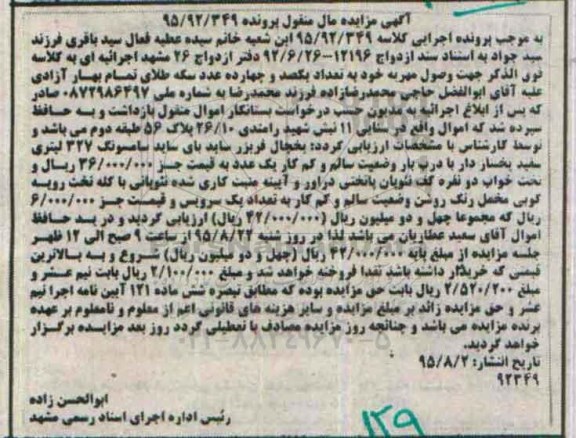 آگهی مزایده مال منقول پرونده ۹۵/۹۲/۳۴۹
به موجب پرونده اجرایی کلاسه ۹۵/۹۲/۳۴۹ این شعبه خانم سیده عطیه فعال سید باقری فرزند
سید جواد به استناد سند ازدواج ۱۲۱۹۶-۹۲/۶/۲۶ دفتر ازدواج ۲۶ مشهد اجرائیه ای به کلاسه
فوق الذکر جهت وصول مهریه خود به تعداد یکصد و چهارده عدد سکه طلای تمام بهار آزادی
علیه آقای ابوالفضل حاجی محمدرضازاده فرزند محمدرضا به شماره ملی ۰۸۷۲۹۸۶۴۹۷ صادر
که پس از ابلاغ اجرائیه به مدیون حسب درخواست بستانکار اموال منقول بازداشت و به حافظ
سپرده شد که اموال واقع در سنایی ۱۱ نبش شهید رامندی ۲۶/۱۰ پلاک ۵۶ طبقه دوم می باشد و
توسط کارشناس با مشخصات ارزیابی گردد: یخچال فریزر ساید بای ساید سامسونگ ۳۲۷ لیتری
سفید یخساز دار با درب بار وضعیت سالم و کم کار یک عدد به قیمت جـز ۳۶/۰۰۰/۰۰۰ ریـال و
تخت خواب دو نفره کف نئوپان پاتختی دراور و آیینه منبت کاری شده نئوپانی با کله تخت رویـه
کوبی مخمل رنگ روشن وضعیت سالم و کم کار به تعداد یک سرویس و قیمت جـز ۶/۰۰۰/۰۰۰
ریال که مجموعا چهل و دو میلیون ریال (۴۲/۰۰۰/۰۰۰ ریال) ارزیابی گردید و در ید حـافظ
اموال آقای سعید عطاریان می باشد لذا در روز شنبه ۹۵/۸/۲۲ از ساعت ۹ صبح الی ۱۲ ظهـر
جلسه مزایده از مبلغ پایه ۴۲/۰۰۰/۰۰۰ ریال (چهل و دو میلیون ریال) شـروع و بـه بـالاترین
قیمتی که خریدار داشته باشد نقدا فروخته خواهد شد و مبلغ ۲/۱۰۰/۰۰۰ ریال بابت نیم عـشر و
مبلغ ۲/۵۲۰/۲۰۰ ریال بابت حق مزایده بوده که مطابق تبصره شش ماده ۱۲۱ آیین نامه اجرا نیم
عشر و حق مزایده زائد بر مبلغ مزایده و سایر هزینه های قانونی اعم از معلوم و نامعلوم بر عهده
برنده مزایده می باشد و چنانچه روز مزایده مصادف با تعطیلی گردد روز بعد مزایـده برگـزار
خواهد گردید.
تاریخ انتشار: ۹۵/۸/۲
۹۲۳۴۹
ابوالحسن زاده
رئیس اداره اجرای اسناد رسمی مشهد
۱۲۹